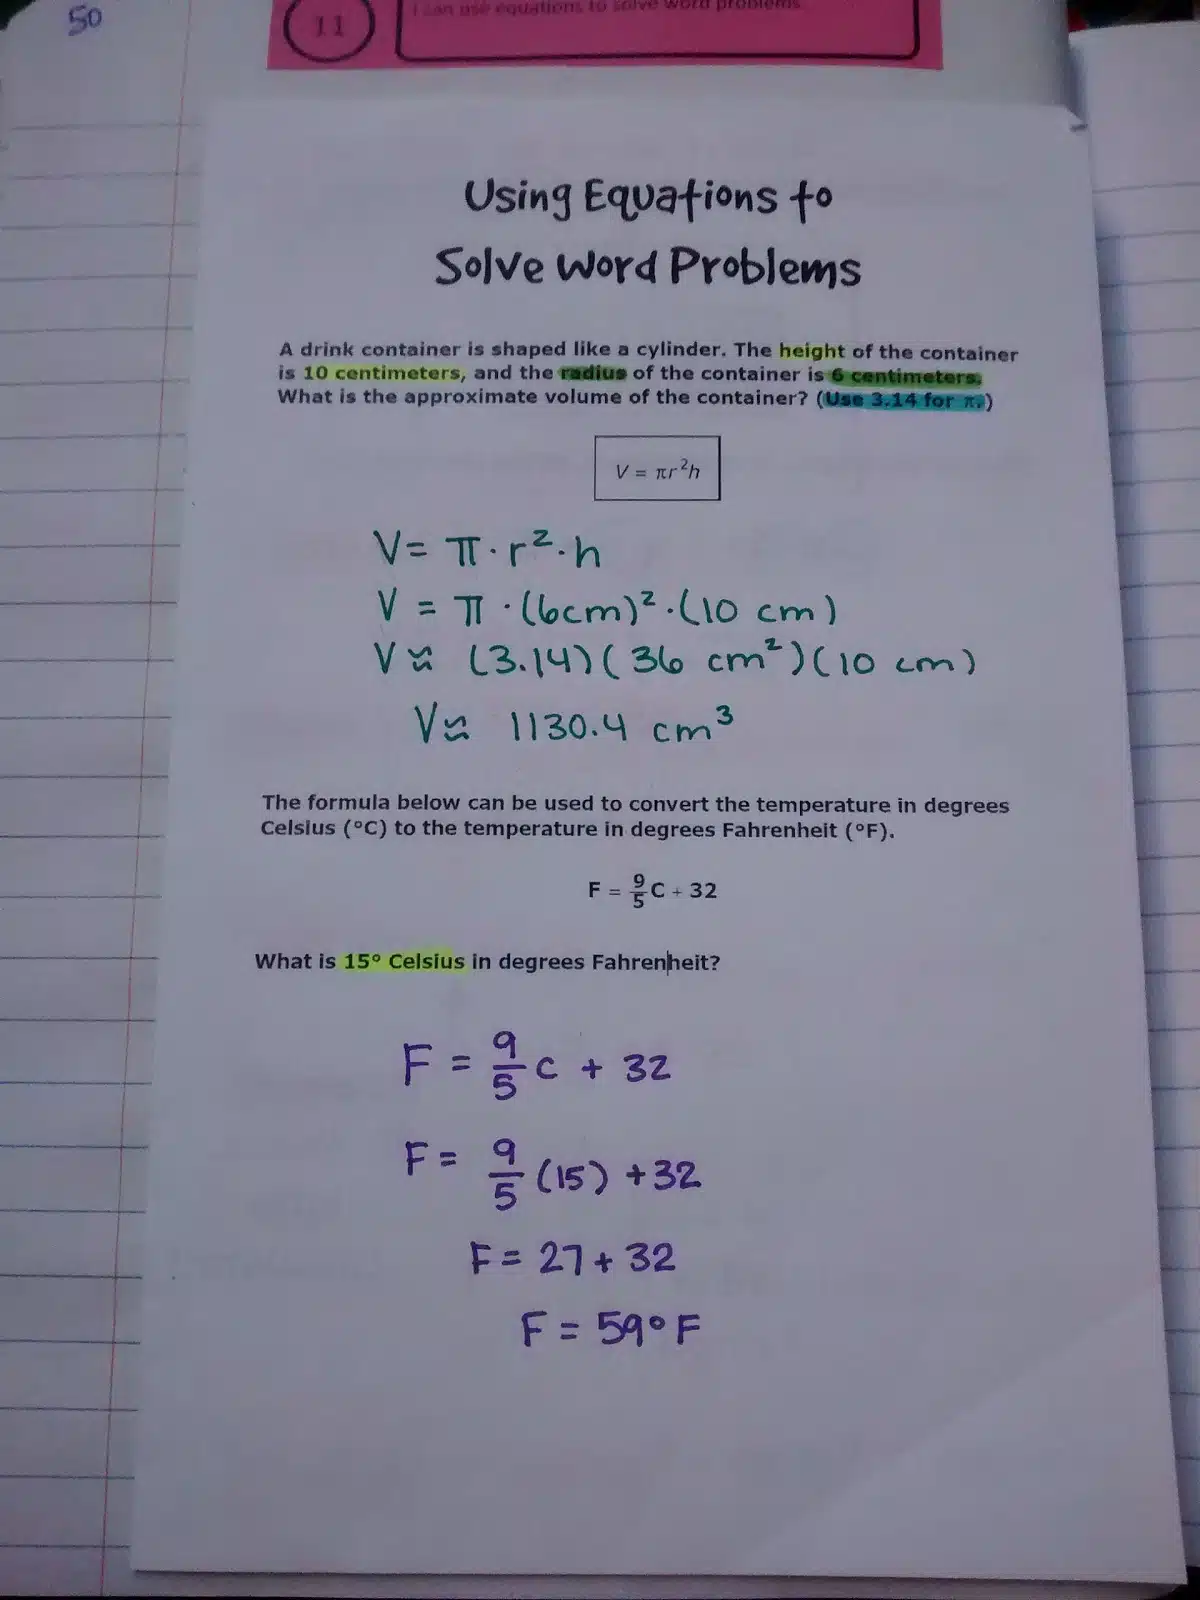 50
11
I can use equations to solve word problems.
Using Equations to
Solve Word Problems
A drink container is shaped like a cylinder. The height of the container
is 10 centimeters, and the radius of the container is 6 centimeters.
What is the approximate volume of the container? (Use 3.14 for π.)
V = πr²h
V = π · r² · h
V = π · (6cm)² · (10 cm)
V ≈ (3.14)(36 cm²)(10 cm)
V ≈ 1130.4 cm³
The formula below can be used to convert the temperature in degrees
Celsius (°C) to the temperature in degrees Fahrenheit (°F).
F = 9/5 C + 32
What is 15° Celsius in degrees Fahrenheit?
F = 9/5 C + 32
F = 9/5 (15) + 32
F = 27 + 32
F = 59° F